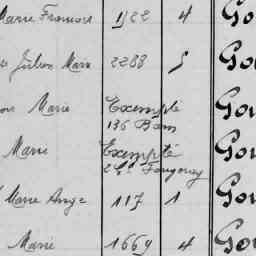 Marie Francois 1922 4 Go
Julien Marie 2288 5 Go
Marie Exempté Gou
136 Bon
Marie Exempté Gou
2 Cie Fougeray
Marie Ange 117 1 Gou
Marie 1669 4 Gou